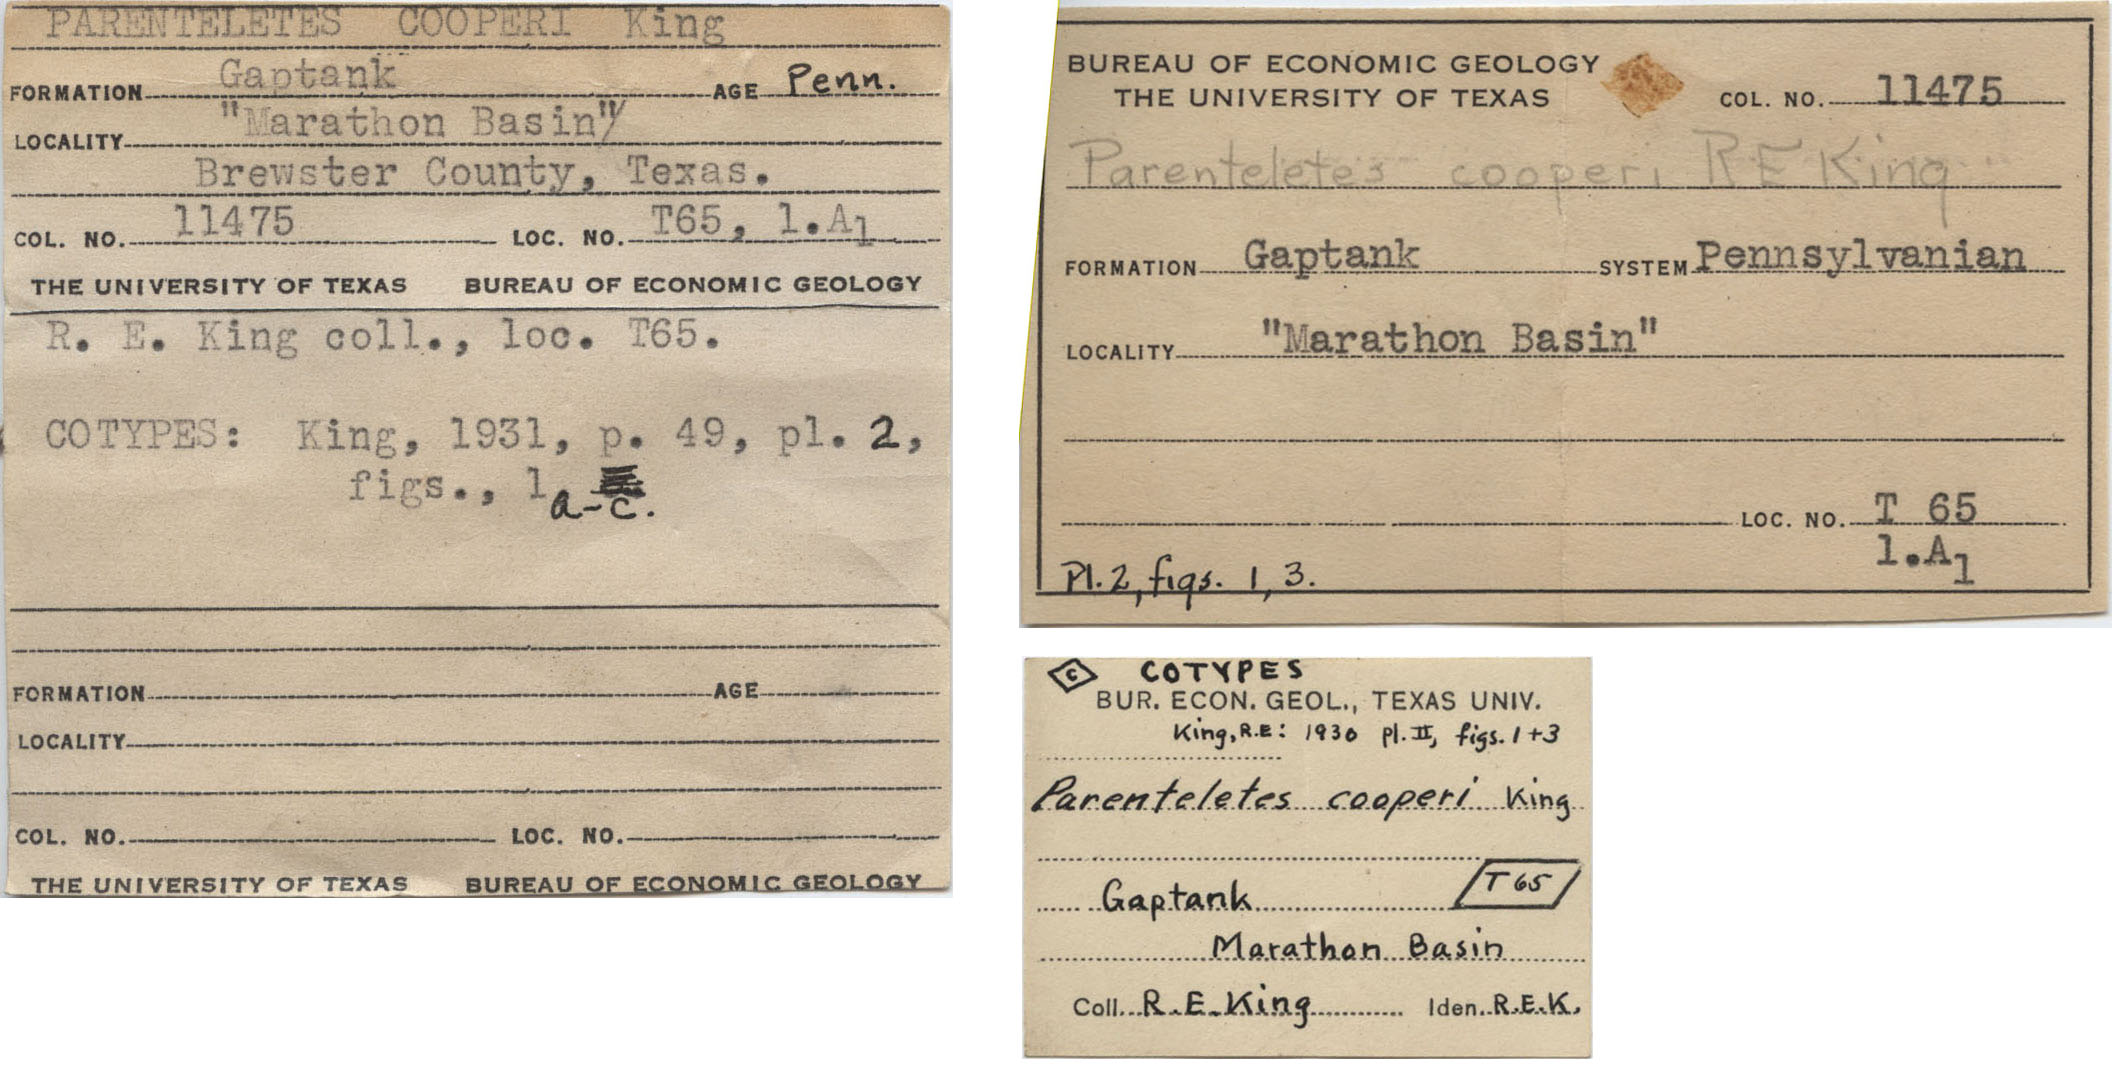 PARENTELETES COOPERI King
FORMATION Gaptank AGE Penn.
LOCALITY "Marathon Basin"/
Brewster County, Texas.
COL. NO. 11475 LOC. NO. T65, 1.A1
THE UNIVERSITY OF TEXAS BUREAU OF ECONOMIC GEOLOGY
R. E. King coll., loc. T65.
COTYPES: King, 1931, p. 49, pl. 2,
figs., 1 a-c.
FORMATION AGE
LOCALITY
COL. NO. LOC. NO.
THE UNIVERSITY OF TEXAS BUREAU OF ECONOMIC GEOLOGY
BUREAU OF ECONOMIC GEOLOGY
THE UNIVERSITY OF TEXAS COL. NO. 11475
Parenteletes cooperi R E King
FORMATION Gaptank SYSTEM Pennsylvanian
LOCALITY "Marathon Basin"
LOC. NO. T 65
1.A1
Pl. 2, figs. 1, 3.
C COTYPES
BUR. ECON. GEOL., TEXAS UNIV.
King, R.E: 1930 pl. II, figs. 1+3
Parenteletes cooperi King
Gaptank T 65
Marathon Basin
Coll. R. E. King Iden. R.E.K.